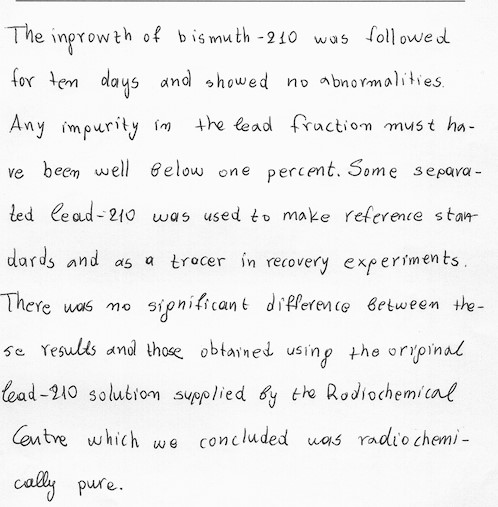 The ingrowth of bismuth-210 was followed
for ten days and showed no abnormalities.
Any impurity in the lead fraction must ha-
ve been well below one percent. Some separa-
ted lead-210 was used to make reference stan-
dards and as a tracer in recovery experiments.
There was no significant difference between the-
se results and those obtained using the original
lead-210 solution supplied by the Radiochemical
Centre which we concluded was radiochemi-
cally pure.